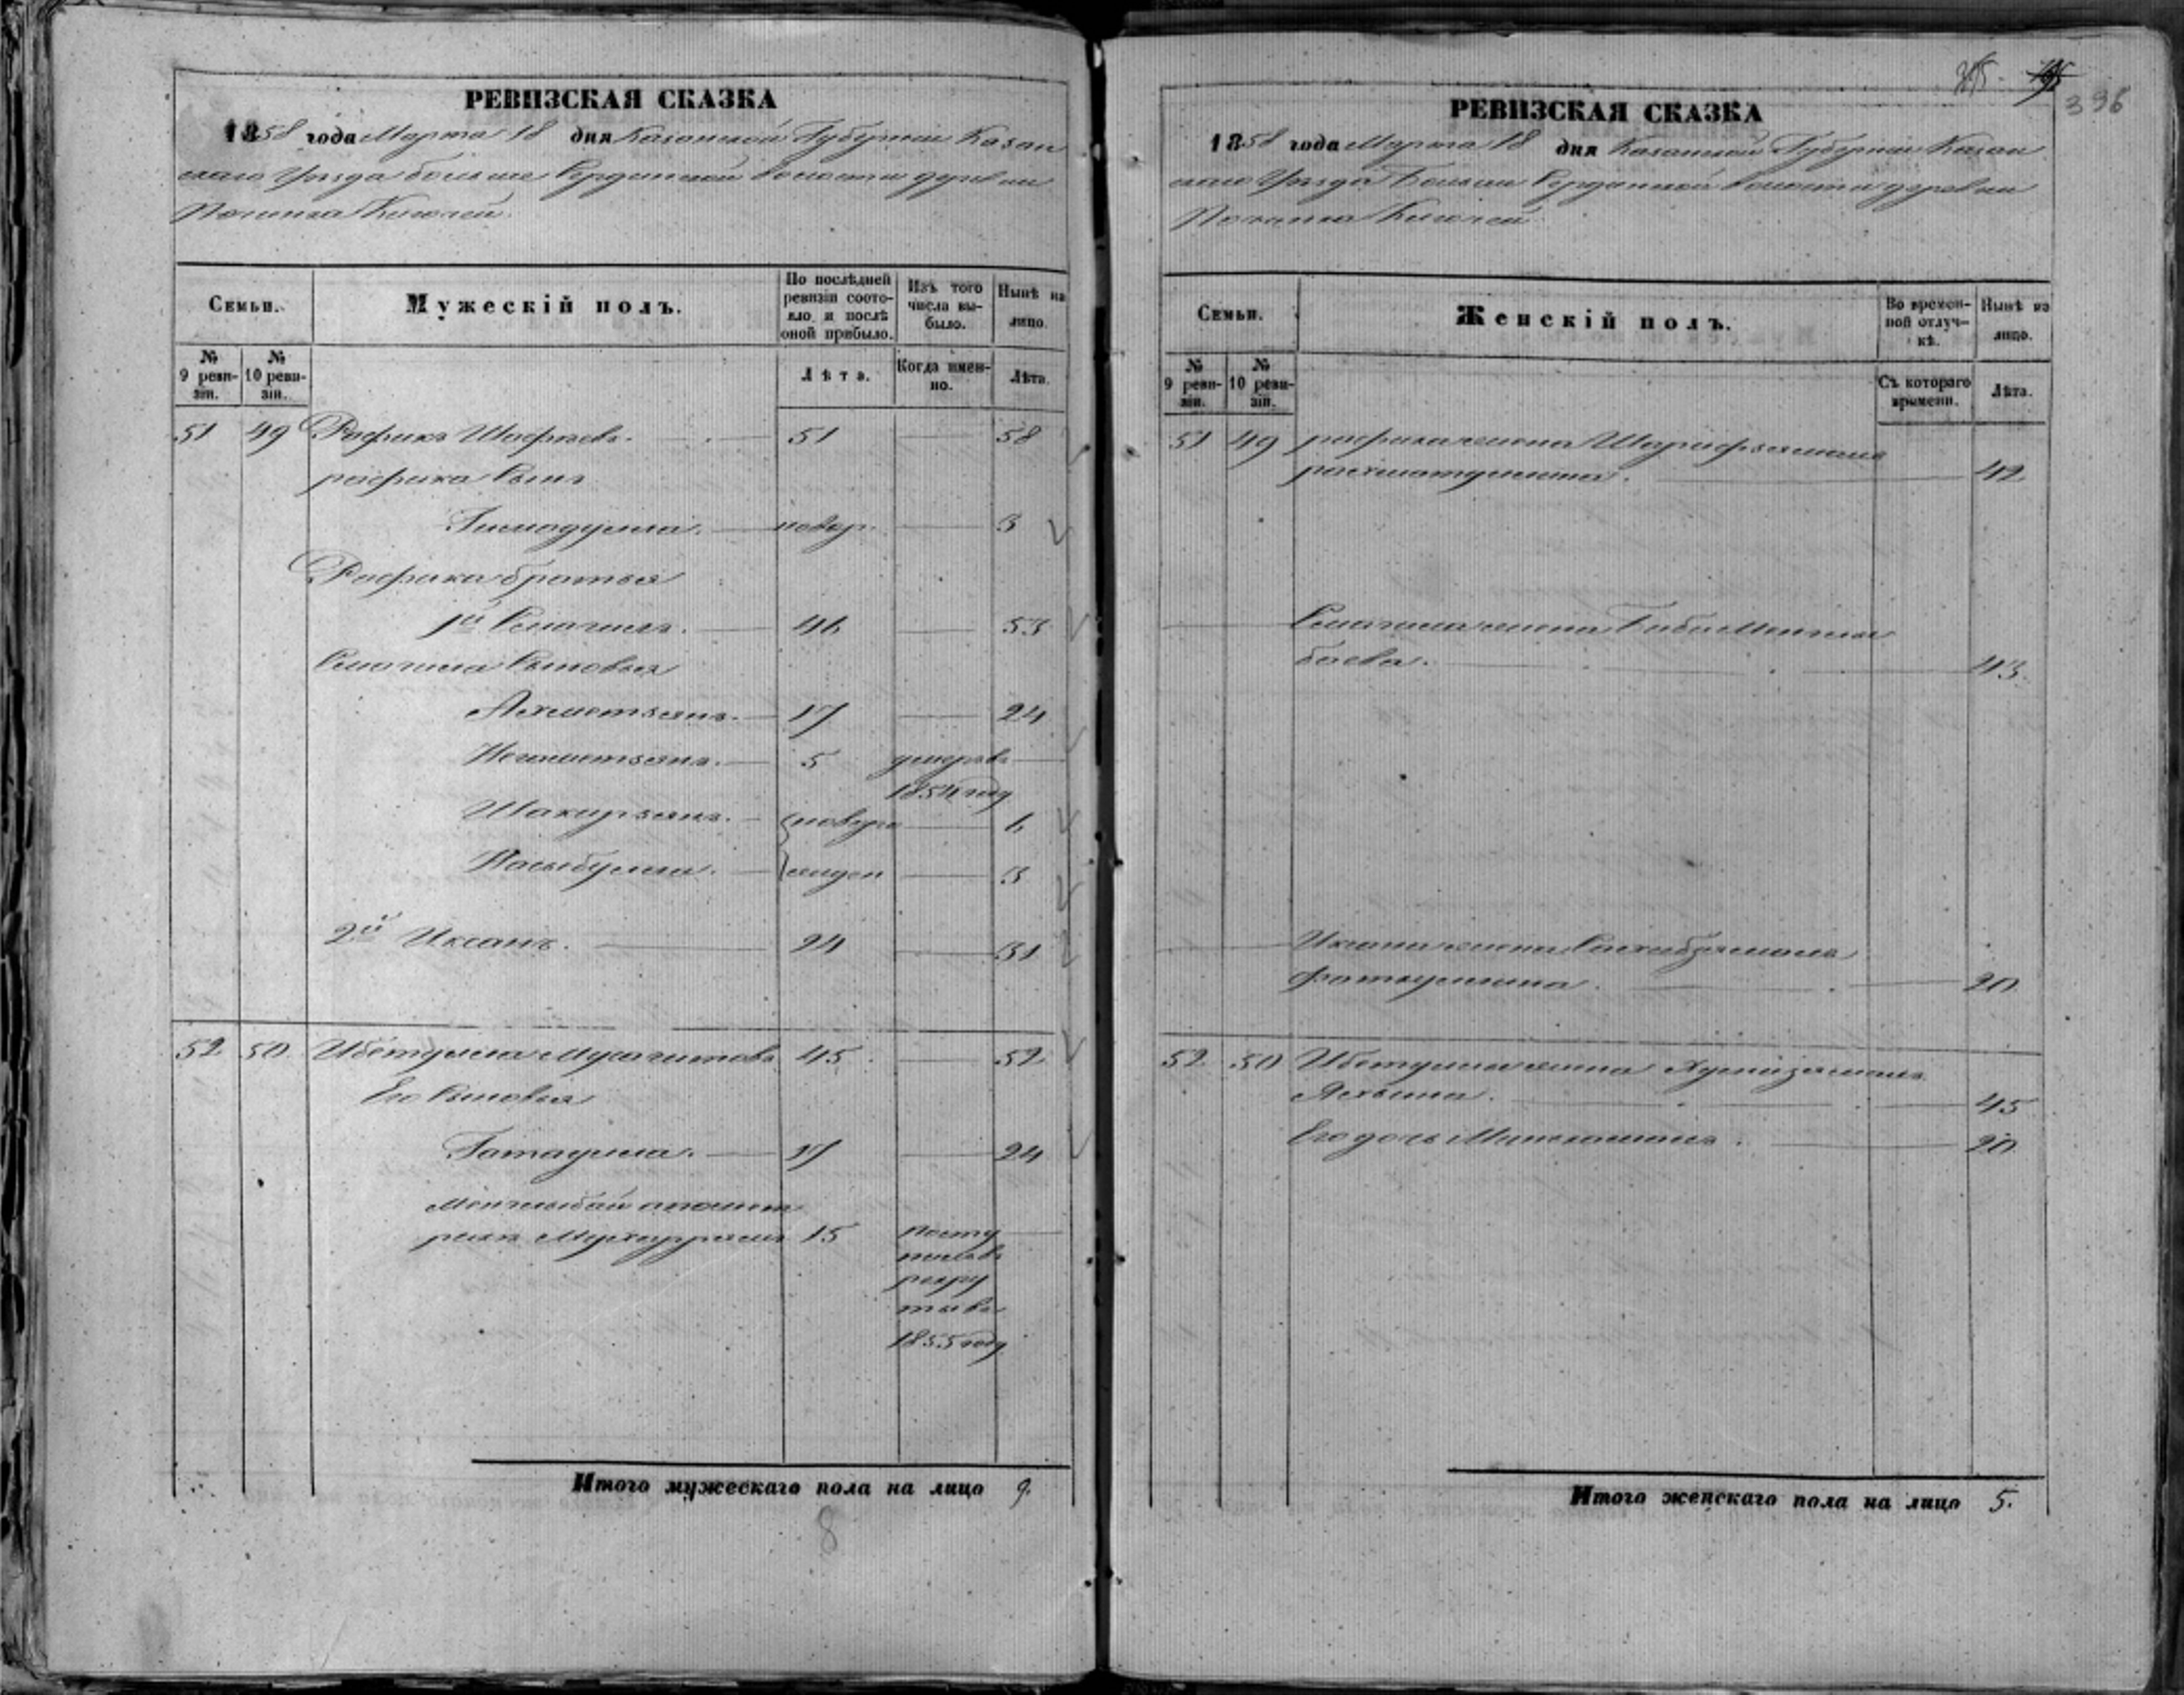 РЕВИЗСКАЯ СКАЗКА
1858 года Марта 18 дня Казанской Губернии Казан
скаго Уезда больше Сердинской волости деревни
Починка Кисмей
Семьи.
Мужескій полъ.
По послѣдней ревизіи состояло и послѣ оной прибыло.
Изъ того числа выбыло.
Нынѣ на лицо.
№ 9 ревизіи.
№ 10 ревизіи.
Лѣта.
Когда именно.
Лѣта.
51 49 Рафикъ Шафѣевъ. 51 58
рафика Сынъ
Гимадулла. новор. 3
Рафика братья
1й Смагилъ. 46 53
Смагила Сыновья
Ахметзянъ. 17 24
Негаметзянъ. 5 умеръ въ
1854 году
Шакирзянъ. новоро 6
Насыбулла. жден 3
2й Иксанъ. 24 31
52 50 Ибетулла 45 52
Его Сыновья
Гатаулла. 17 24
Менглыбай
15 посту
пилъ въ
рекру
ты въ
1855 году
Итого мужескаго пола на лицо 9.
8
396
РЕВИЗСКАЯ СКАЗКА
1858 года Марта 18 дня Казанской Губернии Казан
скаго Уезда Больши Сердинской волости деревни
Починка Кисмей
Семьи.
Женскій полъ.
Во временной отлучкѣ.
Нынѣ на лицо.
№ 9 ревизіи.
№ 10 ревизіи.
Съ котораго времени.
Лѣта.
51 49 рафика жена Шарифзямала
рахматуллина. 42
Смагила жена Биби Менглы
баева. 43
Иксана жена
фатхуллина. 20
52 50 Ибетуллы жена
45
Его дочь 20
Итого женскаго пола на лицо 5.